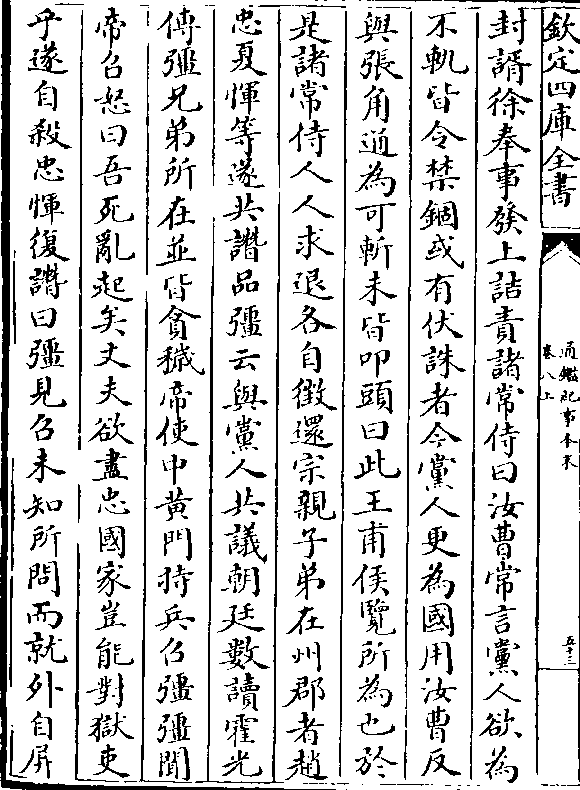 欽定四庫全書
通鑑紀事本末
卷八上
五十三
封諝徐奉事發上詰責諸常侍曰汝曹常言黨人欲為
不軌皆令禁錮或有伏誅者今黨人更為國用汝曹反
與張角通為可斬未皆叩頭曰此王甫侯覽所為也於
是諸常侍人人求退各自徵還宗親子弟在州郡者趙
忠夏惲等遂共譖品彊云與黨人共議朝廷數讀霍光
傳彊兄弟所在並皆貪穢帝使中黃門持兵召彊彊聞
帝召怒曰吾死亂起矣丈夫欲盡忠國家豈能對獄吏
乎遂自殺忠惲復譖曰彊見召未知所問而就外自屏